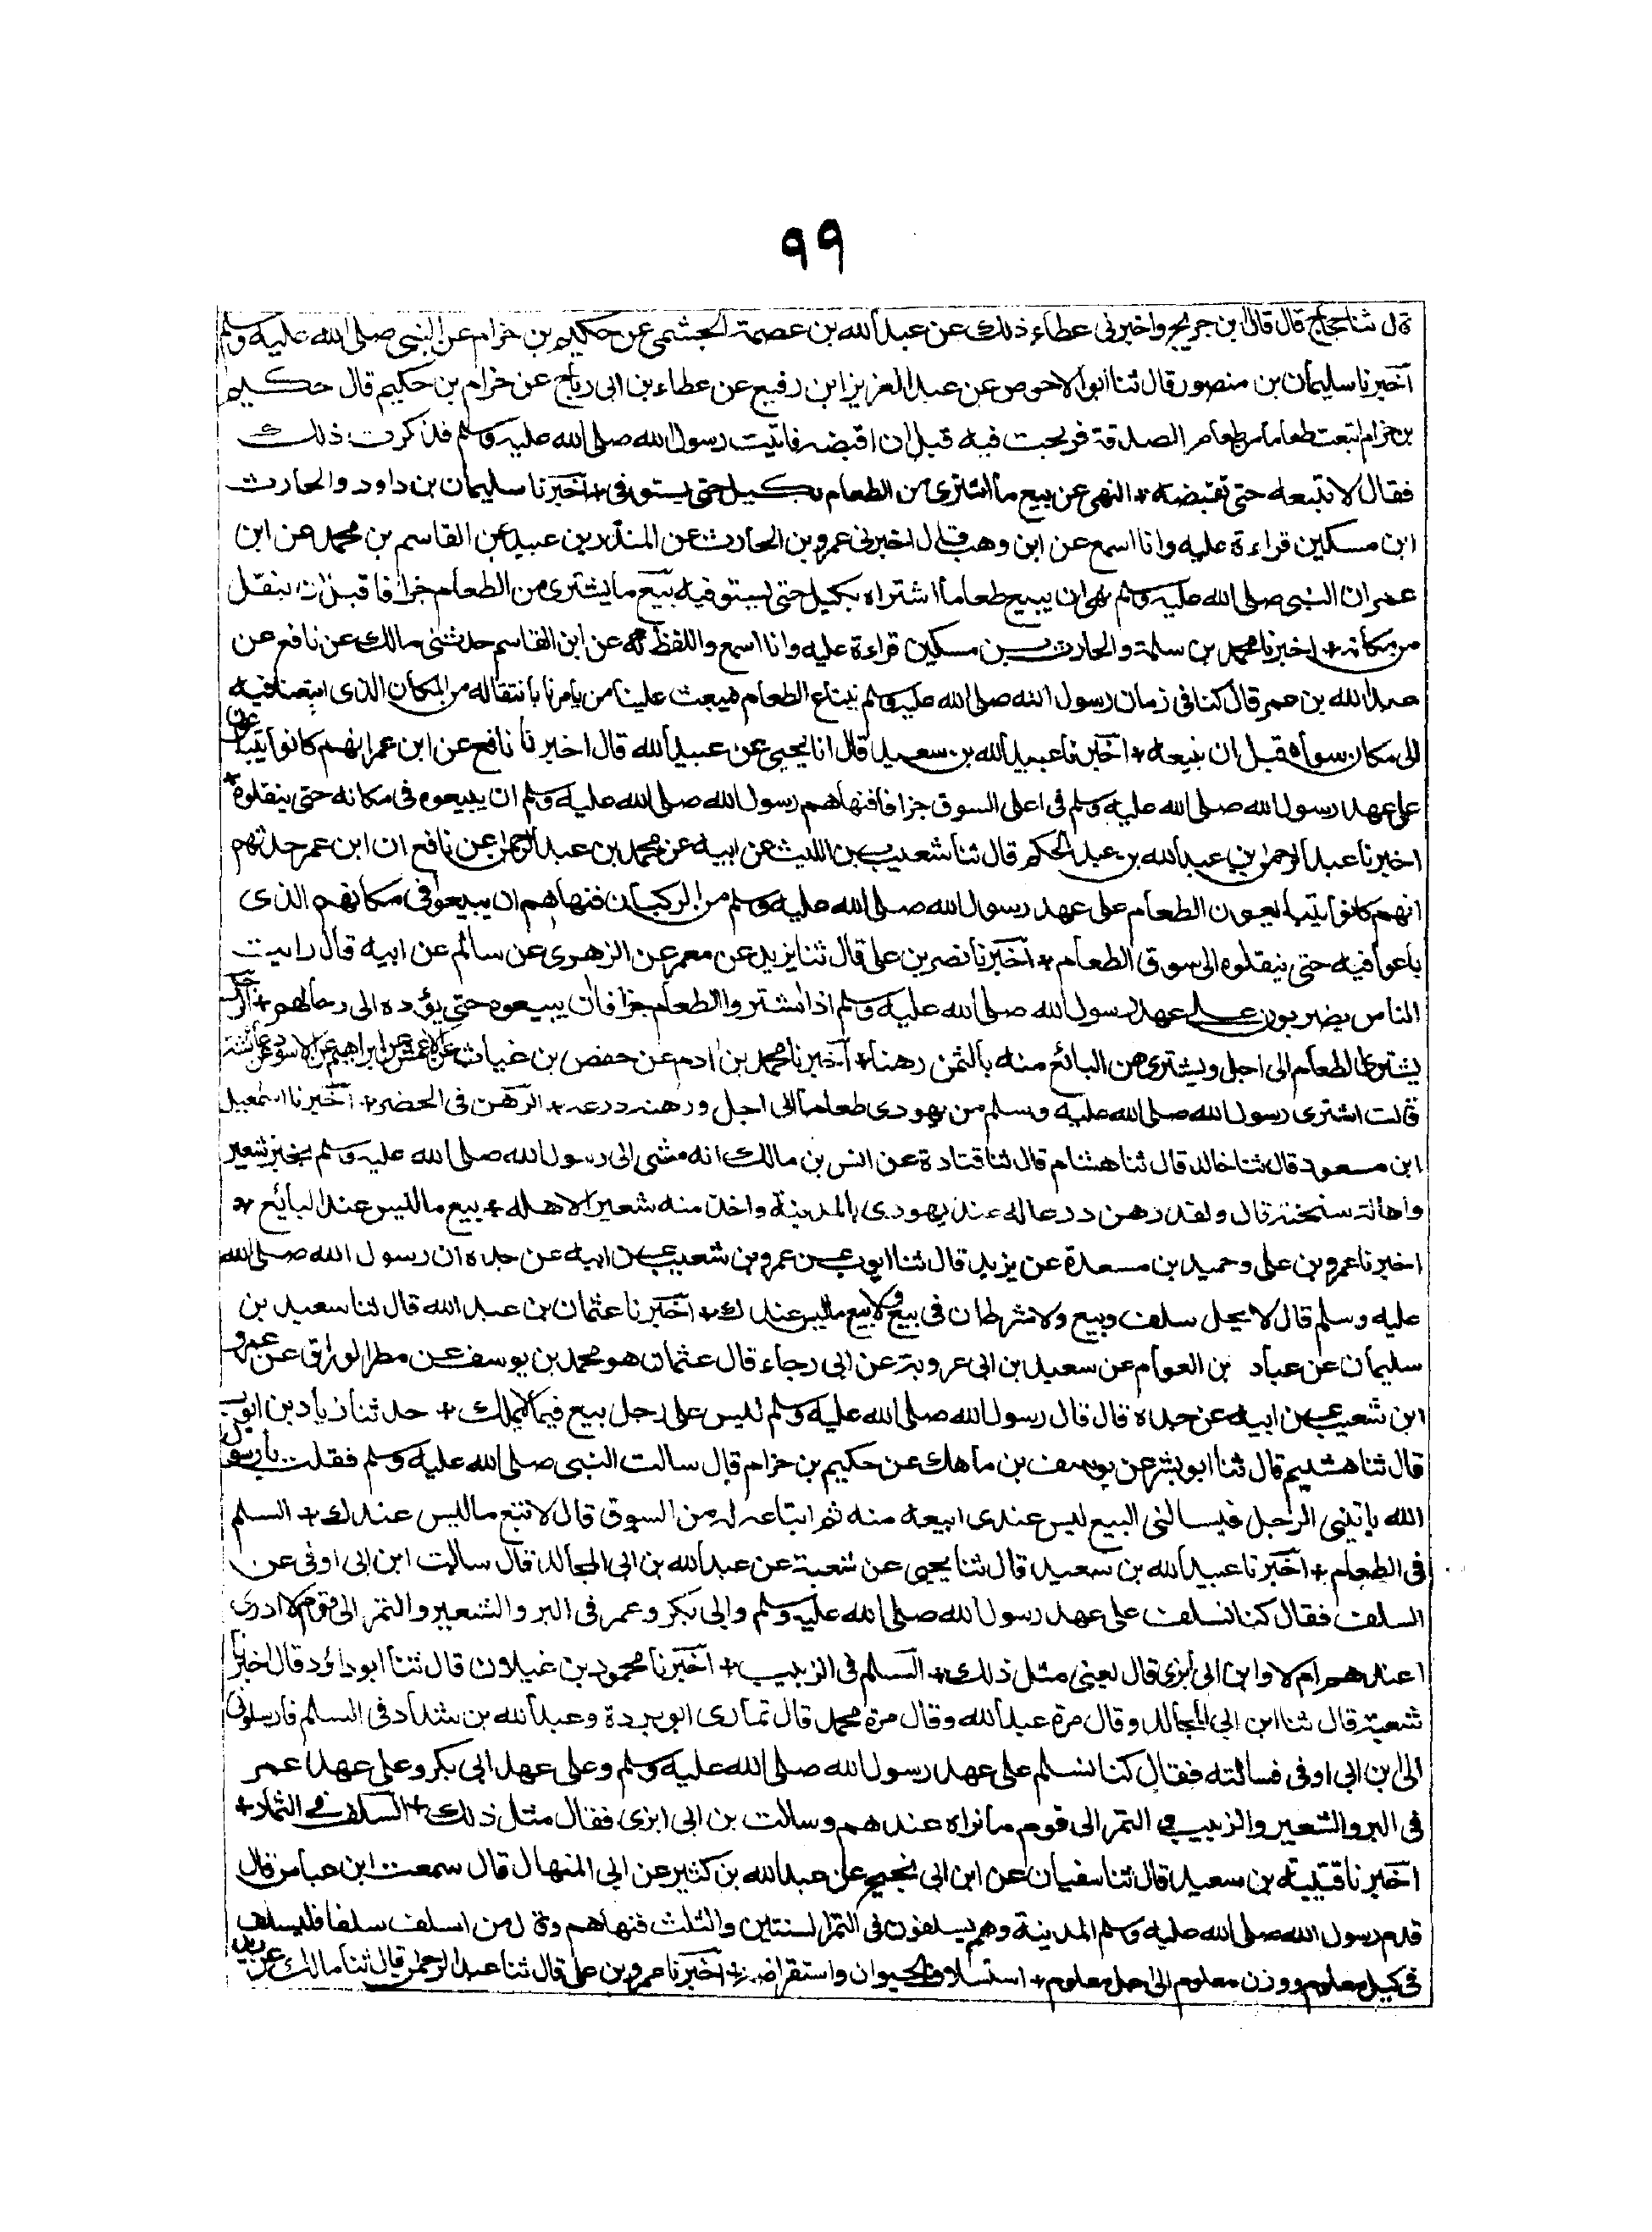 ٩٩
قال ثنا حجاج قال قال ابن جريج واخبرنى عطاء ذلك عن عبد الله بن عصمة الجشمى عن حكيم بن خزام عن النبى صلى الله عليه وسلم
اخبرنا سليمان بن منصور قال ثنا ابو الاحوص عن عبد العزيز ابن رفيع عن عطاء بن ابى رباح عن خزام بن حكيم قال حكيم
بن خزام ابتعت طعاما من طعام الصدقة فربحت فيه قبل ان اقبضه فاتيت رسول الله صلى الله عليه وسلم فذكرت ذلك
فقال لا تبعه حتى تقبضه + النهى عن بيع ما اشترى من الطعام بكيل حتى يستوفى + اخبرنا سليمان بن داود والحارث
ابن مسكين قراءة عليه وانا اسمع عن ابن وهب قال اخبرنى عمرو بن الحارث عن المنذر بن عبيد عن القاسم بن محمد عن ابن
عمر ان النبى صلى الله عليه وسلم نهى ان يبيع طعاما اشتراه بكيل حتى يستوفيه بيع ما يشترى من الطعام جزافا قبل ان ينقل
من مكانه + اخبرنا محمد بن سلمة والحارث بن مسكين قراءة عليه وانا اسمع واللفظ له عن ابن القاسم حدثنى مالك عن نافع عن
عبد الله بن عمر قال كنا فى زمان رسول الله صلى الله عليه وسلم نبتاع الطعام فيبعث علينا من يامرنا بانتقاله من المكان الذى ابتعنا فيه
الى مكان سواه قبل ان نبيعه + اخبرنا عبيد الله بن سعيد قال انا يحيى عن عبيد الله قال اخبرنا نافع عن ابن عمر انهم كانوا يتبايعون
على عهد رسول الله صلى الله عليه وسلم فى اعلى السوق جزافا فنهاهم رسول الله صلى الله عليه وسلم ان يبيعوه فى مكانه حتى ينقلوه +
اخبرنا عبد الرحمن بن عبد الله بن عبد الحكم قال ثنا شعيب بن الليث عن ابيه عن محمد بن عبد الرحمن عن نافع ان ابن عمر حدثهم
انهم كانوا يتبايعون الطعام على عهد رسول الله صلى الله عليه وسلم من الركبان فنهاهم ان يبيعوا فى مكانهم الذى
باعوا فيه حتى ينقلوه الى سوق الطعام + اخبرنا نصر بن على قال ثنا يزيد عن معمر عن الزهرى عن سالم عن ابيه قال رايت
الناس يضربون على عهد رسول الله صلى الله عليه وسلم اذا اشتروا الطعام جزافا ان يبيعوه حتى يؤده الى رحالهم + الرجل
يشترى الطعام الى اجل ويشترى من البائع منه بالثمن رهنا + اخبرنا محمد بن ادم عن حفص بن غياث عن الاعمش عن ابراهيم عن الاسود عن عائشة
قالت اشترى رسول الله صلى الله عليه وسلم من يهودى طعاما الى اجل ورهنه درعه + الرهن فى الحضر + اخبرنا اسمعيل
ابن مسعود قال ثنا خالد قال ثنا هشام قال ثنا قتادة عن انس بن مالك انه مشى الى رسول الله صلى الله عليه وسلم بخبز شعير
واهالة سنخة قال ولقد رهن درعا له عند يهودى بالمدينة واخذ منه شعيرا لاهله + بيع ما ليس عند البايئع +
اخبرنا عمرو بن على وحميد بن مسعدة عن يزيد قال ثنا ايوب عن عمرو بن شعيب عن ابيه عن جده ان رسول الله صلى الله
عليه وسلم قال لا يحل سلف وبيع ولا شرطان فى بيع ولا بيع ما ليس عندك + اخبرنا عثمان بن عبد الله قال ثنا سعيد بن
سليمان عن عباد بن العوام عن سعيد بن ابى عروبة عن ابى رجاء قال عثمان هو محمد بن يوسف عن مطر الوراق عن عمرو
ابن شعيب عن ابيه عن جده قال قال رسول الله صلى الله عليه وسلم ليس على رجل بيع فيما لا يملك + حدثنا زياد بن ايوب
قال ثنا هشيم قال ثنا ابو بشر عن يوسف بن ماهك عن حكيم بن حزام قال سالت النبى صلى الله عليه وسلم فقلت يا رسول
الله ياتينى الرجل فيسالنى البيع ليس عندى ابيعه منه ثم ابتاعه له من السوق قال لا تبع ما ليس عندك + السلم
فى الطعام + اخبرنا عبيد الله بن سعيد قال ثنا يحيى عن شعبة عن عبد الله بن ابى المجالد قال سالت ابن ابى اوفى عن
السلف فقال كنا نسلف على عهد رسول الله صلى الله عليه وسلم وابى بكر وعمر فى البر والشعير والتمر الى قوم لا ادرى
اعندهم ام لا وابن ابى ابزى قال يعنى مثل ذلك + السلم فى الزبيب + اخبرنا محمود بن غيلان قال ثنا ابو داؤد قال اخبرنا
شعبة قال ثنا ابن ابى المجالد وقال مرة عبد الله وقال مرة محمد قال تمارى ابو بردة وعبد الله بن شداد فى السلم فارسلونى
الى ابن ابى اوفى فسالته فقال كنا نسلم على عهد رسول الله صلى الله عليه وسلم وعلى عهد ابى بكر وعلى عهد عمر
فى البر والشعير والزبيب فى التمر الى قوم ما نراه عندهم وسالت بن ابى ابزى فقال مثل ذلك + السلف فى الثمار +
اخبرنا قتيبة بن سعيد قال ثنا سفيان عن ابن ابى نجيح عن عبد الله بن كثير عن ابى المنهال قال سمعت ابن عباس قال
قدم رسول الله صلى الله عليه وسلم المدينة وهم يسلفون فى التمر السنتين والثلث فنهاهم وقال من اسلف سلفا فليسلف
فى كيل معلوم ووزن معلوم الى اجل معلوم + استسلاف الحيوان واستقراضه + اخبرنا عمرو بن على قال ثنا عبد الرحمن قال ثنا مالك عن زيد